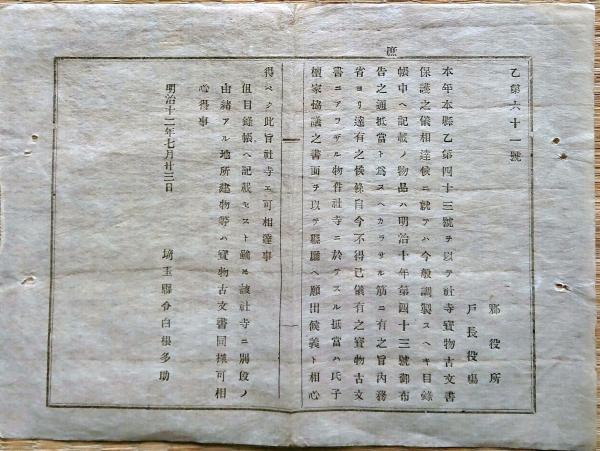 庶
乙第六十一號
郡役所
戸長役塲
本年本縣乙第四十三號ヲ以テ社寺寳物古文書
保護之儀相達候ニ就テハ今般調製スヘキ目錄
帳中ヘ記載ノ物品ハ明治十年第四十三號御布
告之通抵當ト爲スヘカラサル筋ニ有之旨內務
省ヨリ達有之候條自今不得已儀有之寳物古文
書ニアラザル物件社寺ニ於テスル抵當ハ氏子
檀家協議之書面ヲ以テ縣廳ヘ願出候義ト相心
得ヘク此旨社寺エ可相達事
但目錄帳ヘ記載セスト雖モ該社寺ニ別段ノ
由緒アル地所建物等ハ寳物古文書同樣可相
心得事
明治十二年七月廿三日
埼玉縣令白根多助